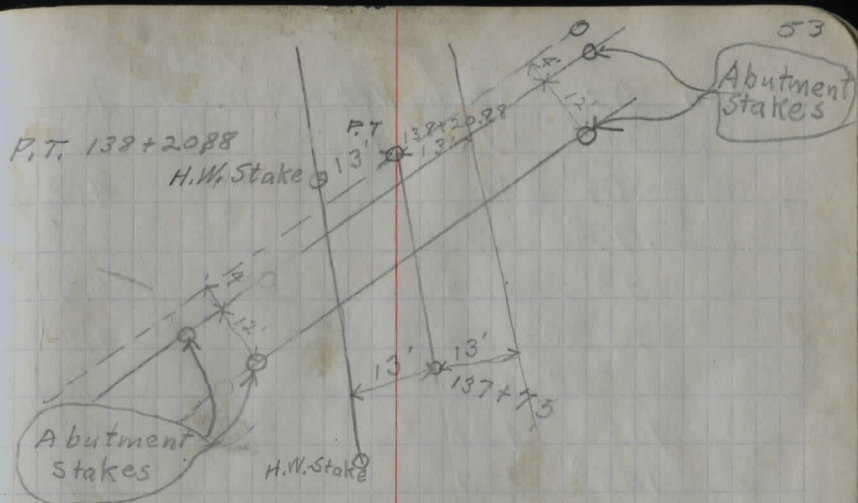 53
Abutment
Stakes
P.T. 138+2088
P.T
138+2088
H.W. Stake
13'
13'
4'
12'
4'
12'
13'
13'
137+75
Abutment
Stakes
H.W. Stake